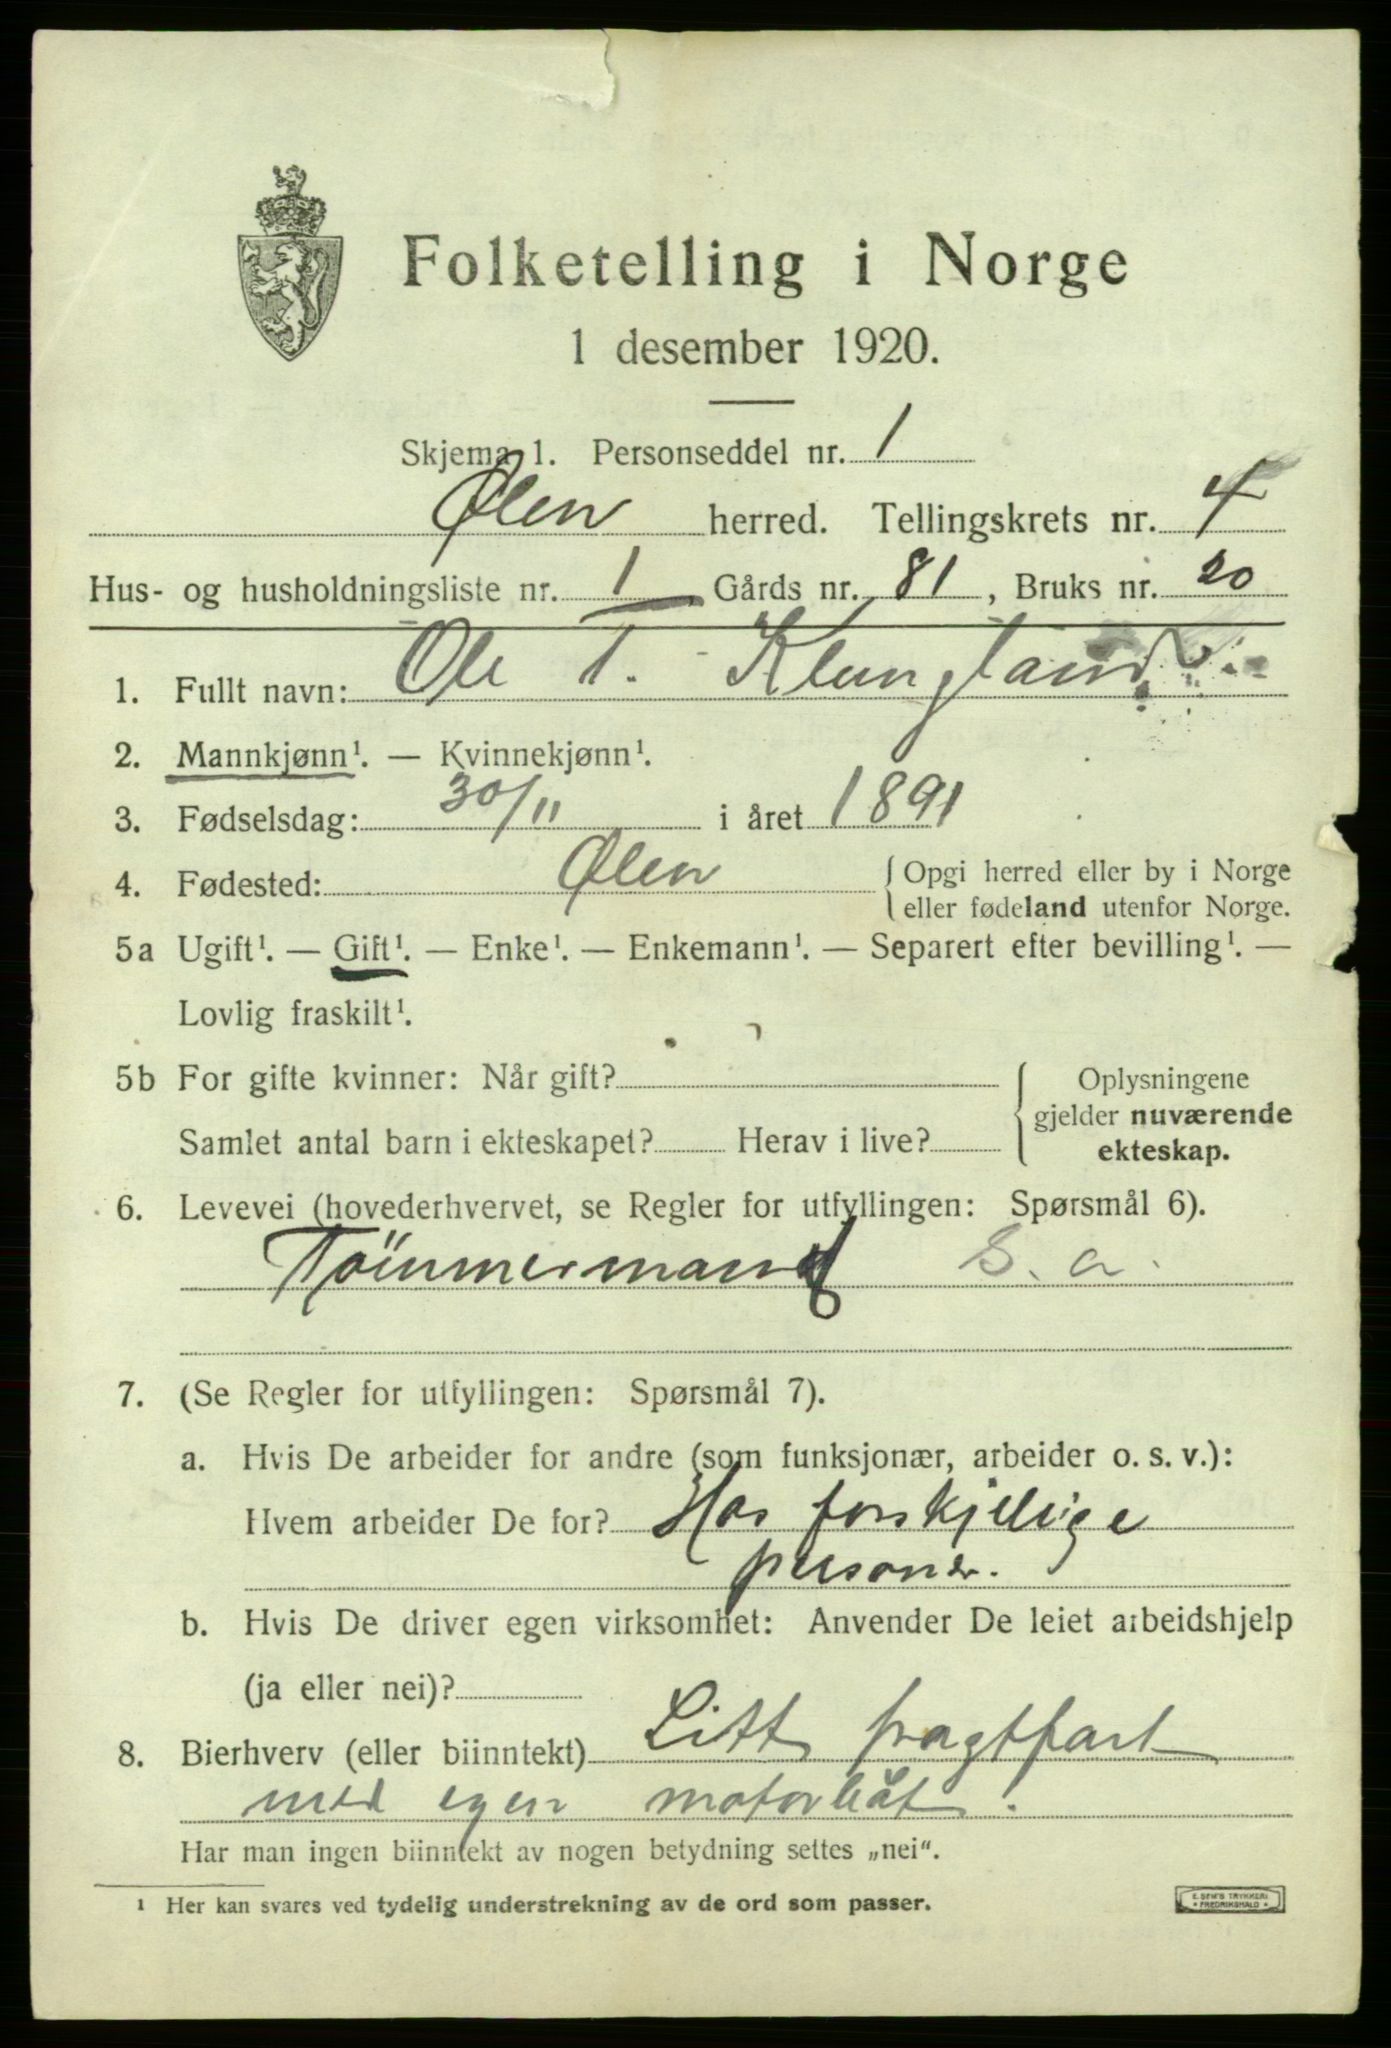 Folketelling i Norge
1 desember 1920.
Skjema 1. Personseddel nr. 1
Ølen herred. Tellingskrets nr. 4
Hus- og husholdningsliste nr. 1 Gårds nr. 81, Bruks nr. 20
1. Fullt navn: Ole T. Klungland
2. Mannkjønn¹. — Kvinnekjønn¹.
3. Fødselsdag: 30/11 i året 1891
4. Fødested: Ølen { Opgi herred eller by i Norge
eller fødeland utenfor Norge.
5a Ugift¹. — Gift¹. — Enke¹. — Enkemann¹. — Separert efter bevilling¹. —
Lovlig fraskilt¹.
5b For gifte kvinner: Når gift? { Oplysningene
gjelder nuværende
Samlet antal barn i ekteskapet? Herav i live?
ekteskap.
6. Levevei (hovederhvervet, se Regler for utfyllingen: Spørsmål 6).
Tømmermand s. a.
7. (Se Regler for utfyllingen: Spørsmål 7).
a. Hvis De arbeider for andre (som funksjonær, arbeider o. s. v.):
Hvem arbeider De for? Hos forskjellige
personer.
b. Hvis De driver egen virksomhet: Anvender De leiet arbeidshjelp
(ja eller nei)?
8. Bierhverv (eller biinntekt) Litt fragtfart
med egen motorbåt.
Har man ingen biinntekt av nogen betydning settes „nei“.
¹ Her kan svares ved tydelig understrekning av de ord som passer.
E. SEM'S TRYKKERI
* FREDRIKSHALD *